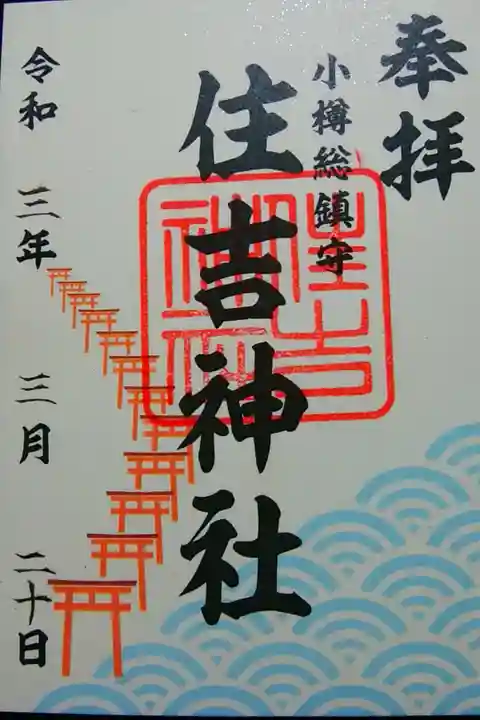 奉拝
小樽総鎮守
住吉神社
住吉神社
令和 三年 三月 二十日